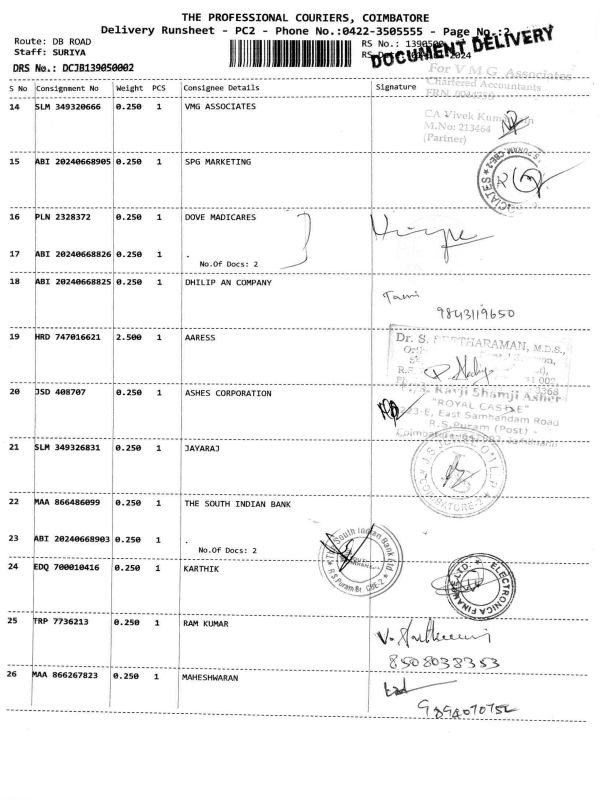 THE PROFESSIONAL COURIERS, COIMBATORE
Delivery Runsheet - PC2 - Phone No.:0422-3505555 - Page No.:2
Route: DB ROAD
Staff: SURIYA
RS No.: 1390500
DOCUMENT DELIVERY
DRS No.: DCJB139050002
For V M G Associates
Chartered Accountants
S No Consignment No Weight PCS Consignee Details Signature
14 SLM 349320666 0.250 1 VMG ASSOCIATES
CA Vivek
M.No: 213464
(Partner)
15 ABI 20240668905 0.250 1 SPG MARKETING
16 PLN 2328372 0.250 1 DOVE MADICARES
17 ABI 20240668826 0.250 1 .
No.Of Docs: 2
18 ABI 20240668825 0.250 1 DHILIP AN COMPANY
9843119650
19 HRD 747016621 2.500 1 AARESS
Dr. S. SEETHARAMAN, M.D.S.,
20 JSD 408707 0.250 1 ASHES CORPORATION
Ravji Shamji Asher
"ROYAL CASTLE"
East Sambandam Road
R.S.Puram (Post) -
21 SLM 349326831 0.250 1 JAYARAJ
COIMBATORE-2
22 MAA 866486099 0.250 1 THE SOUTH INDIAN BANK
23 ABI 20240668903 0.250 1 .
No.Of Docs: 2
South Indian Bank Ltd
R S Puram Br. CBE-2
24 EDQ 700010416 0.250 1 KARTHIK
ELECTRONICA FINANCE LTD.
25 TRP 7736213 0.250 1 RAM KUMAR
8508038353
26 MAA 866267823 0.250 1 MAHESHWARAN